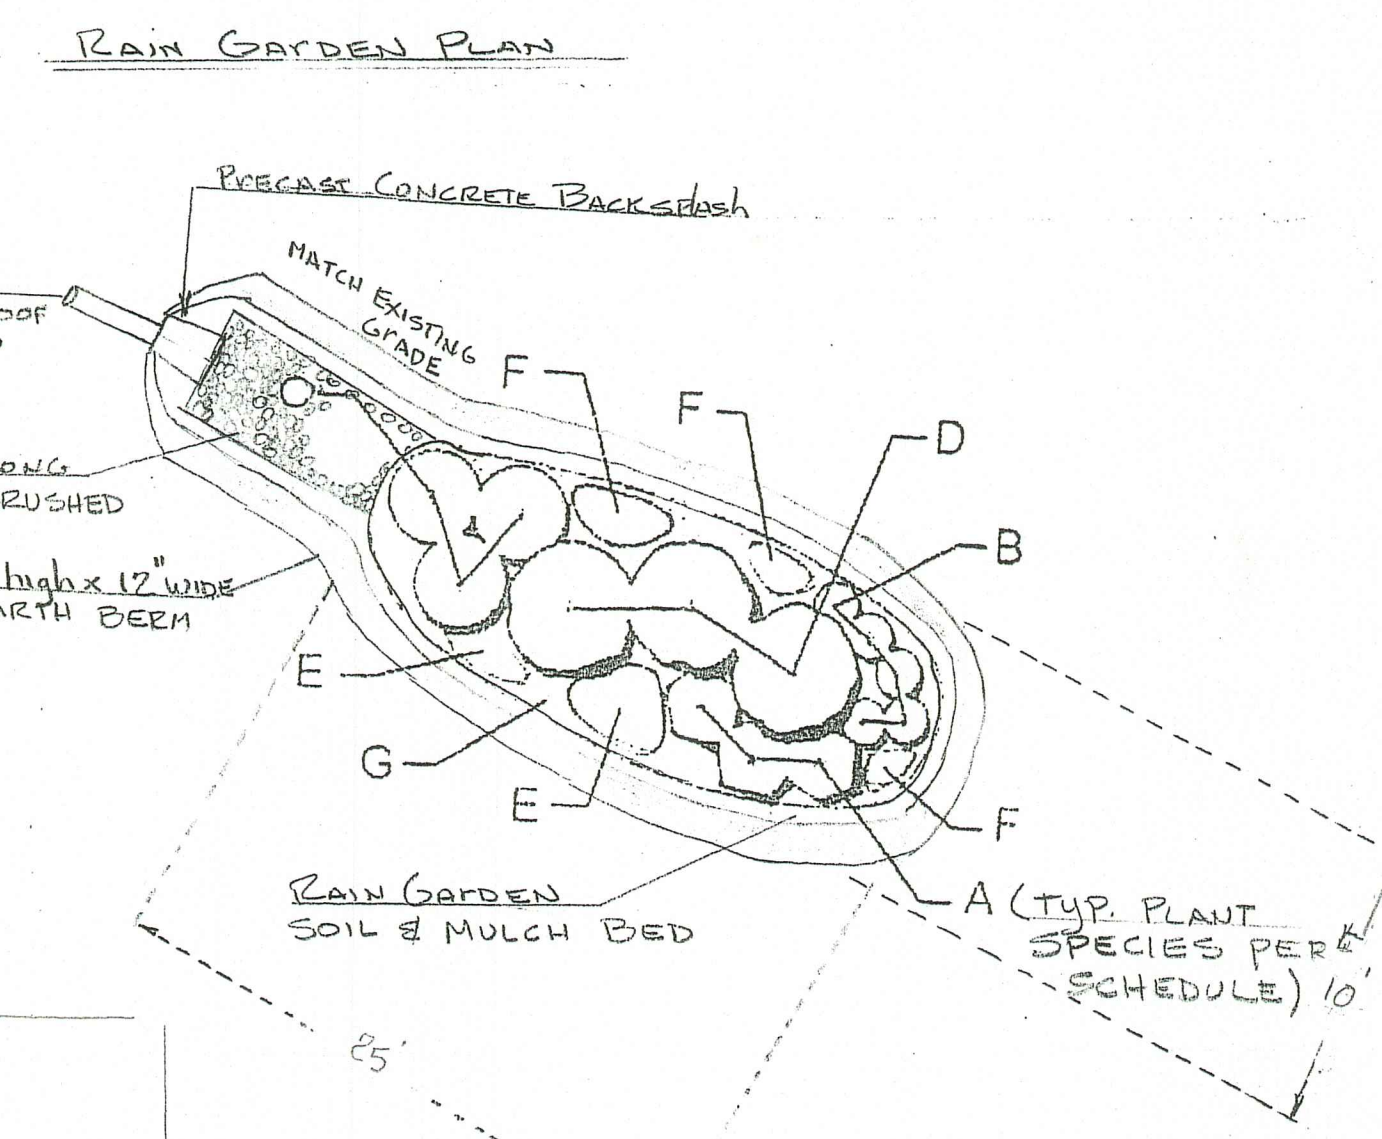 RAIN GARDEN PLAN
PRECAST CONCRETE BACKSPLASH
MATCH EXISTING
GRADE
OOF
ONG
RUSHED
high x 12" WIDE
ARTH BERM
F
F
D
B
C
E
G
E
F
A (TYP. PLANT
SPECIES PER
SCHEDULE)
10'
RAIN GARDEN
SOIL & MULCH BED
25'